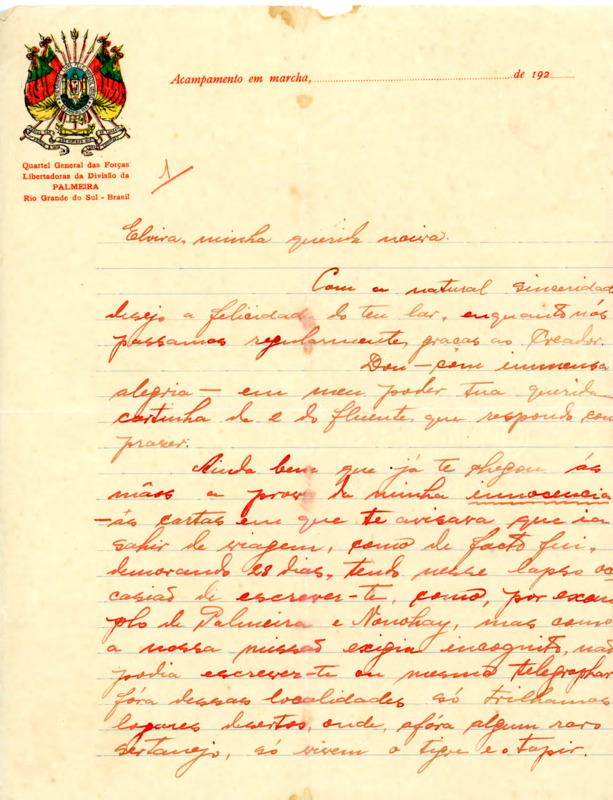 Acampamento em marcha, de 192
Quartel General das Forças
Libertadoras da Divisão da
PALMEIRA
Rio Grande do Sul - Brasil
1
Elvira, minha querida noiva.
Com a natural sinceridad
desejo a felicidade do teu lar, enquanto nós
passamos regularmente, graças ao Creador.
Dou - com immensa
alegria - em meu poder tua querida
cartinha de 2 do fluente, que respondo com
praser.
Ainda bem que já te chegou ás
mãos a prova da minha innocencia
- ás cartas em que te avisava que ia
sahir de viagem, como de facto fui,
demorando 28 dias, tendo nesse lapso oc
casião de escrever-te, como, por exem
plo de Palmeira e Nonohay, mas como
a nossa missão exigia incognito, não
podia escrever-te ou mesmo telegraphar
fóra dessas localidades só trilhamos
logares desertos, onde, afóra algum raro
sertanejo, só vivem o tigre e o tapir.